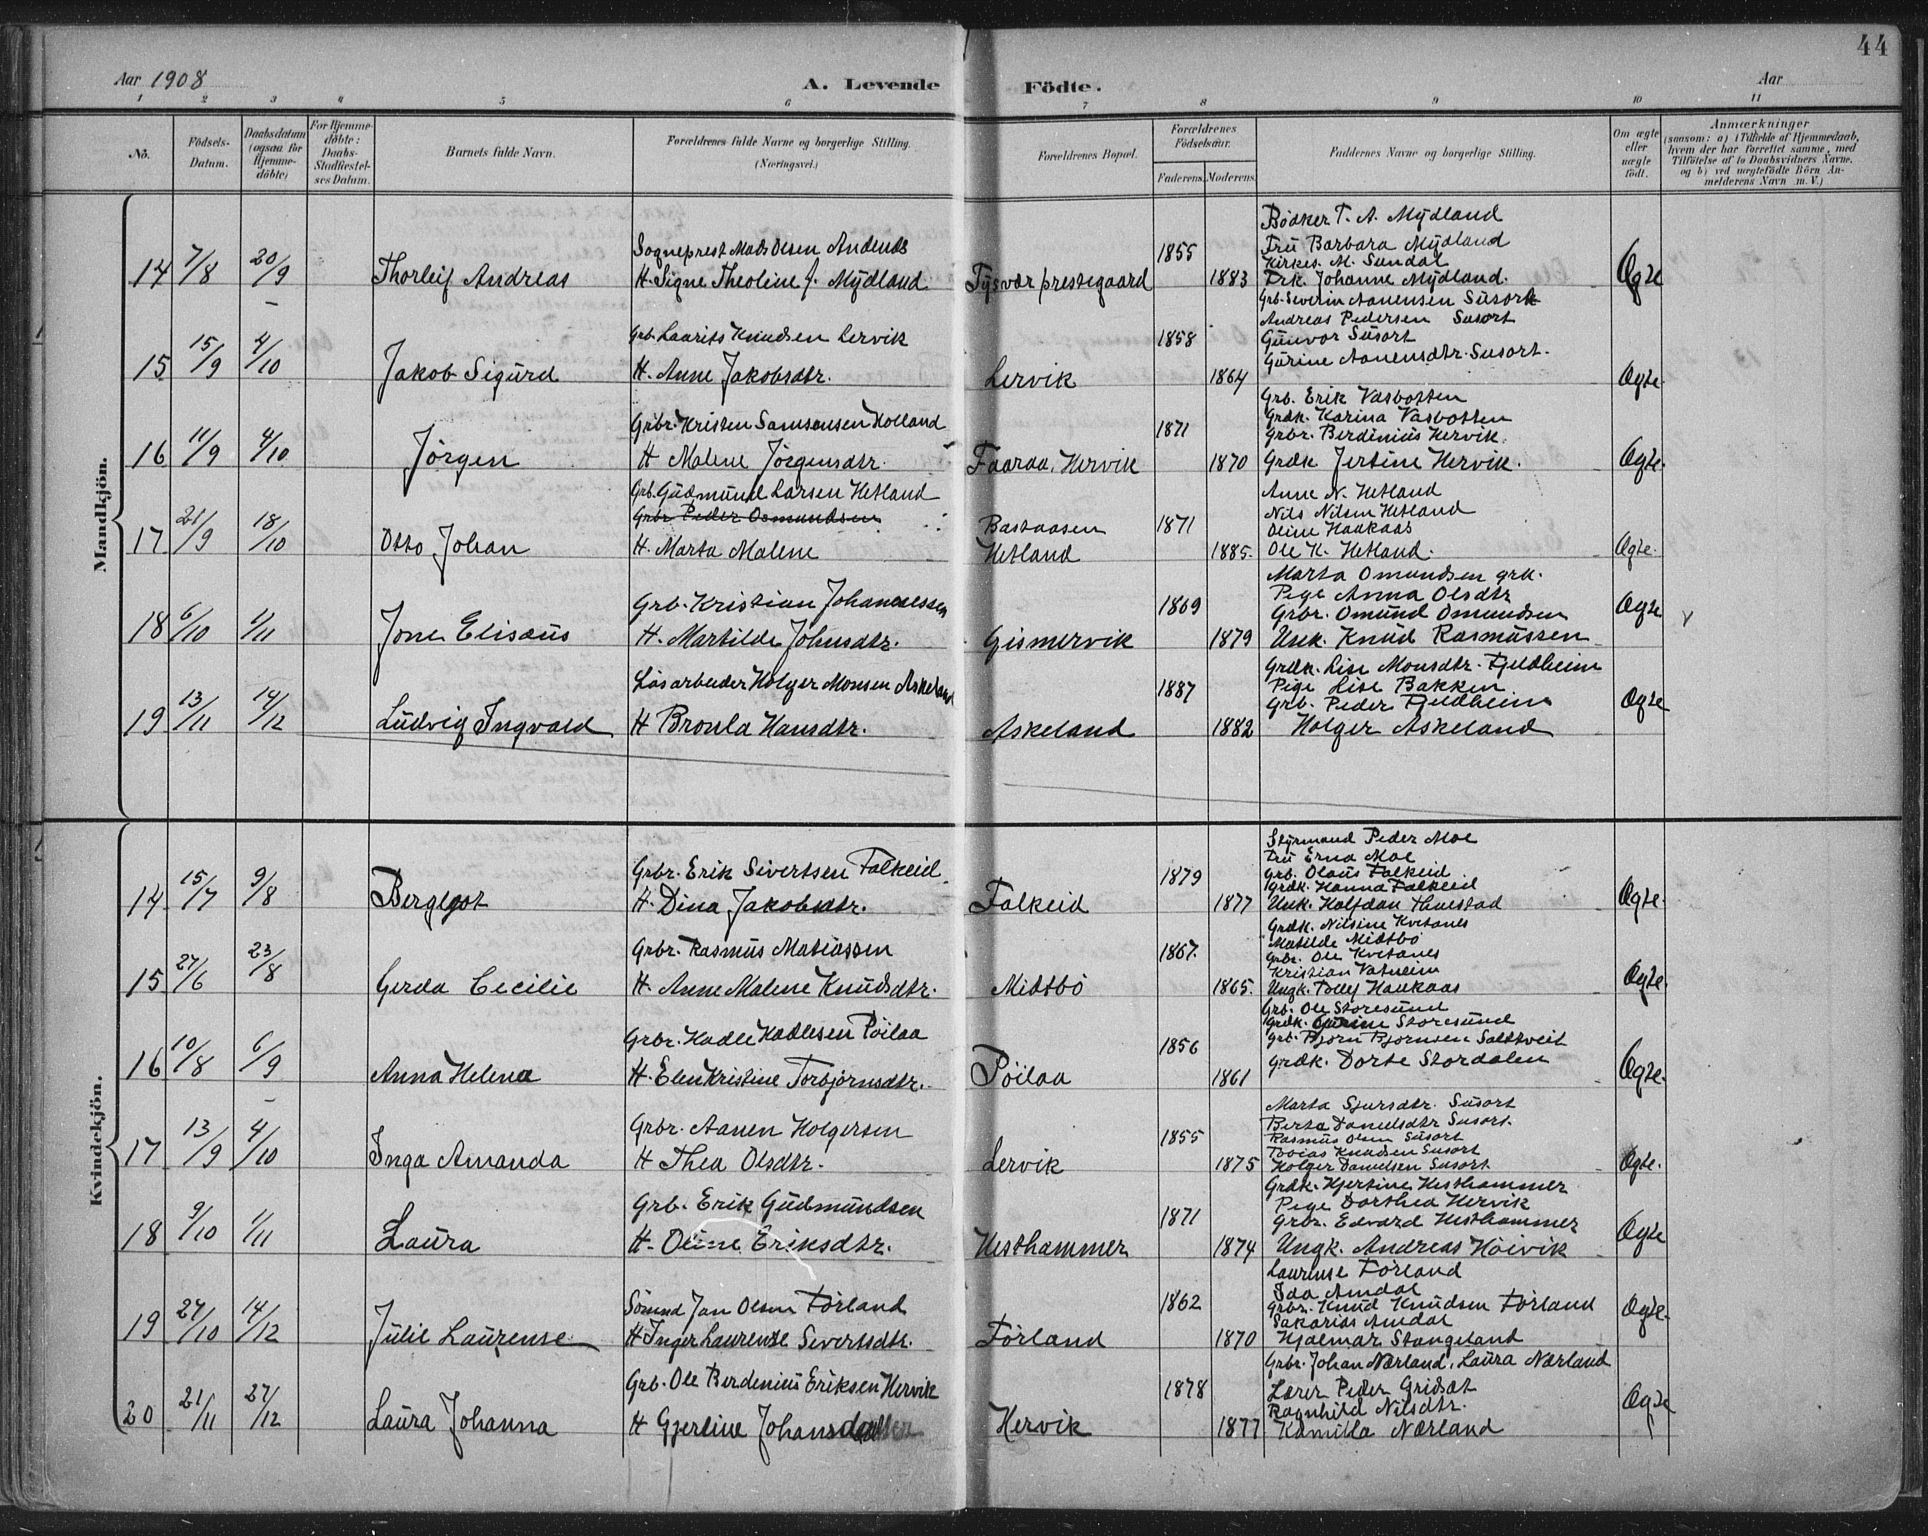 44
Aar 1908
A. Levende Födte.
Aar
1 2 3 4 5 6 7 8 9 10 11
No.
Födsels-Datum.
Daabsdatum (ogsaa for Hjemmedöbte)
For Hjemmedöbte: Daabs-Stadfestelses Datum.
Barnets fulde Navn.
Forældrenes fulde Navne og borgerlige Stilling. (Næringsvei.)
Forældrenes Bopæl.
Forældrenes Födselsaar.
Faderens. Moderens.
Faddernes Navne og borgerlige Stilling.
Om ægte eller uægte födt.
Anmærkninger
(saasom: a) i Tilfælde af Hjemmedaab, hvem der har forrettet samme, med Tilföielse af to Daabsvidners Navne, og b) ved uægtefödte Börn Anmelderens Navn m. V.)
Mandkjön.
14 7/8 20/9 Thorleif Andreas
Sogneprest Mads Olsen Andenæs
H. Signe Theoline f. Mydland
Tysvær prestegaard 1855 1883
Bødker T. A. Mydland
Fru Barbara Mydland
Kirkes. M. Sundal
Frk. Johanne Mydland.
Ægte
15 15/9 4/10 Jakob Sigurd
Grb. Laurits Knudsen Lervik
H. Anne Jakobsdtr.
Lervik 1858 1864
Grb. Severin Aanensen Susort
Andreas Pedersen Susort
Gunvor Susort
Gurine Aanensdtr. Susort.
Ægte.
16 11/9 4/10 Jörgen
Grbr. Kristen Samsonsen Holland
H Malene Jörgensdtr.
Faaraa, Hervik 1871 1870
Grb. Erik Vasbotten
Grdk. Karina Vasbotten
Grbr. Berdinius Hervik.
Grdk Jertine Hervik.
Ægte.
17 21/9 18/10 Otto Johan
Grb. Gudmund Larsen Hetland
Grbr Peder Osmundsen
H. Marta Malene
Bastaasen
Hetland 1871 1885.
Anne N. Hetland
Nils Nilsen Hetland
Oline Haakaas
Ole K. Hetland.
Ægte.
18 6/10 1/11 Jone Elisæus
Grb. Kristian Johannessen
H. Martilde Johnsdtr.
Gismervik 1869 1879
Marta Omundsen grk.
Pige Anna Olsdtr
Grbr. Omund Omundsen
Unk. Knud Rasmussen
Ægte
19 13/11 14/12 Ludvig Ingvald
Løsarbeider Holger Monsen Askeland
H Bronla Hansdtr.
Askeland 1887 1882
Grdk. Lise Monsdtr. Fjeldheim
Pige Lise Bakken
Grb. Peder Fjeldheim
Holger Askeland
Ægte
Kvindekjön.
14 15/7 9/8 Bergljot
Grbr. Erik Sivertsen Falkeid
H. Dina Jakobsdtr.
Falkeid 1879 1877
Styrmand Peder Moe
Fru Erna Moe
Grb. Olaus Falkeid
Grdk. Hanna Falkeid
Unk. Halfdan Thuestad
Ægte.
15 27/6 23/8 Gerda Cecilie
Grbr. Rasmus Matiassen
H. Anne Malene Knudsdtr.
Midtbö 1867. 1865.
Grdk. Nilsine Kvitanes
Matilde Midtbö
Grbr. Ole Kvitanes
Kristian Vatneim
Ungk. Tollef Haukaas
Ægte.
16 10/8 6/9 Anna Helena
Grbr. Hadle Hadlesen Pöilaa
H. Elen Kristine Torbjørnsdtr.
Pöilaa 1856 1861
Grb. Ole Storesund
Grdk. Gurine Storesund
Grb. Bjørn Bjørnsen Saltveit
Grdk. Dorte Stordalen
Ægte.
17 13/9 4/10 Inga Amanda
Grbr. Aanen Holgersen
H Thea Olsdtr.
Lervik 1855 1875
Marta Sjursdtr. Susort
Berta Danielsdtr Susort.
Rasmus Olsen Susort
Tobias Knudsen Susort
Holger Danielsen Susort
Ægte.
18 9/10 1/11 Laura
Grb. Erik Gudmundsen
H. Oline Eriksdtr.
Hesthammer 1871 1874
Grdk. Hjertine Hesthammer
Pige Dorthea Hervik
Grbr. Edvard Hesthammer
Ungk. Andreas Höivik
Ægte
19 27/10 14/12 Julie Laurense
Sömnd Jan Olsen Førland
H Inger Laurense Sivertsdtr.
Förland 1862 1870
Laurense Førland
Ida Amdal
Grbr. Knud Knudsen Førland
Sakarias Amdal
Hjalmar Stangeland
Ægte.
20 21/11 27/12 Laura Johanna
Grb. Ole Berdinius Eriksen Hervik
H Gjertine Johansdatter
Hervik 1878 1877
Grbr. Johan Nærland, Laura Nærland
Lærer Peder Gridset
Ragnhild Nilsdtr.
Kamilla Nærland
Ægte